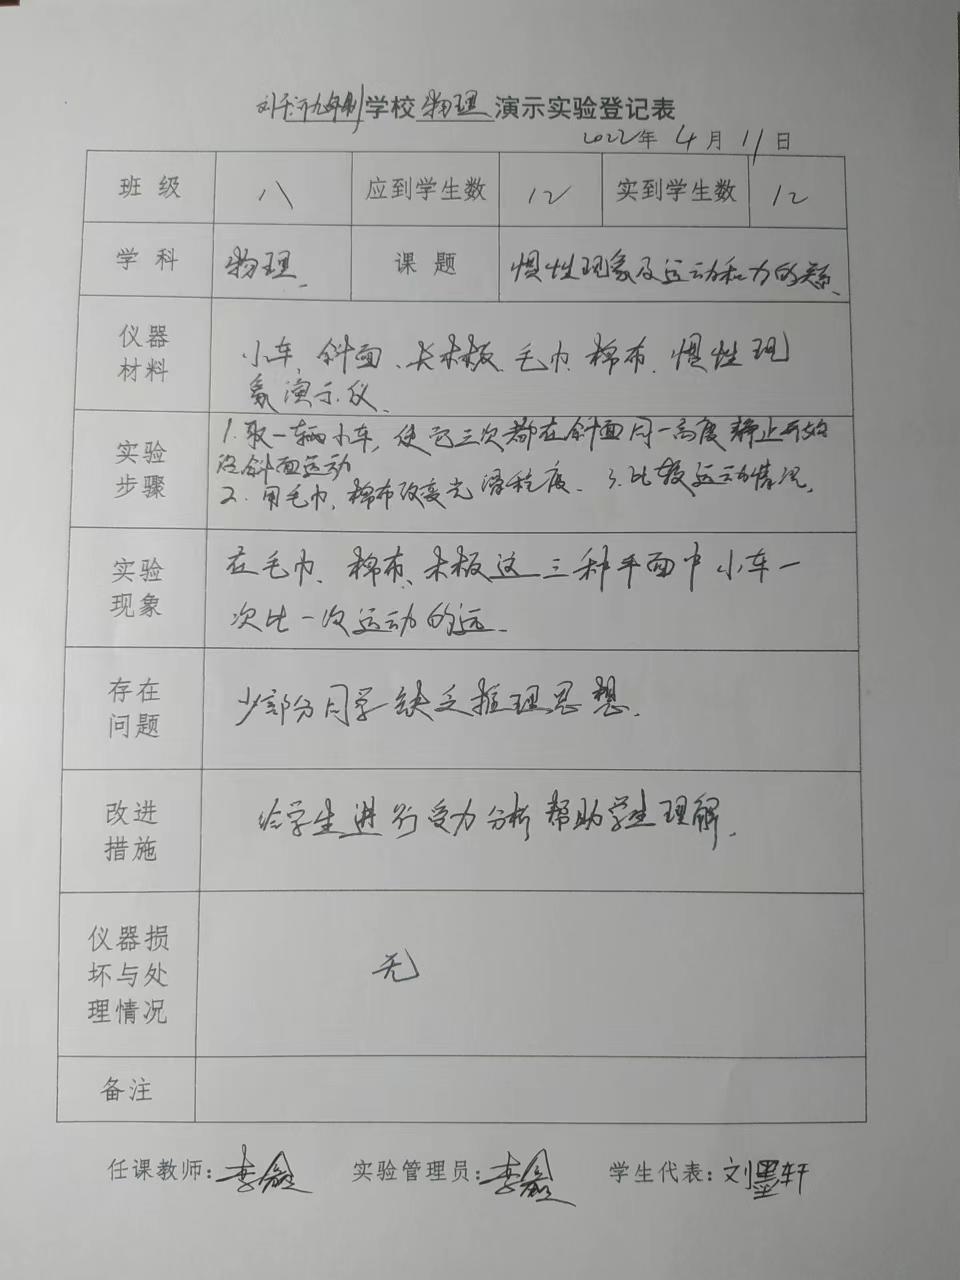 九年制学校物理演示实验登记表
2022年4月11日
班级 八 应到学生数 12 实到学生数 12
学科 物理. 课题 惯性现象及运动和力的关系.
仪器材料 小车, 斜面、长木板、毛巾、棉布、惯性现
象演示仪.
实验步骤 1.取一辆小车, 使它三次都在斜面同一高度静止开始
沿斜面运动
2.用毛巾、棉布改变光滑程度. 3.比较运动情况.
实验现象 在毛巾、棉布、木板这三种平面中小车一
次比一次运动的远.
存在问题 少部分同学缺乏推理思想.
改进措施 给学生进行受力分析帮助学生理解.
仪器损坏与处理情况 无
备注
任课教师:李鑫 实验管理员:李鑫 学生代表:刘墨轩